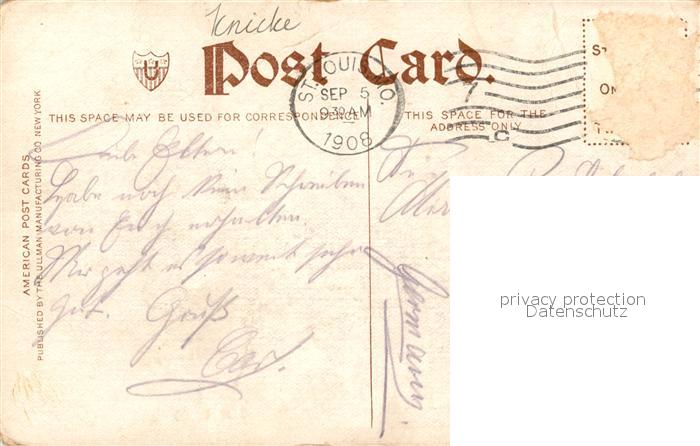 Knicke
Post Card.
U
ST. LOUIS, MO.
SEP 5
930 AM
1908
1
C
ST
ON
THIS SPACE MAY BE USED FOR CORRESPONDENCE
THIS SPACE FOR THE
ADDRESS ONLY
AMERICAN POST CARDS
PUBLISHED BY THE ULLMAN MANUFACTURING CO NEW YORK
Liebe Eltern!
Habe noch kein Schreiben
von Euch erhalten.
Mir geht es soweit sehr
gut. Gruß
Germany
privacy protection
Datenschutz